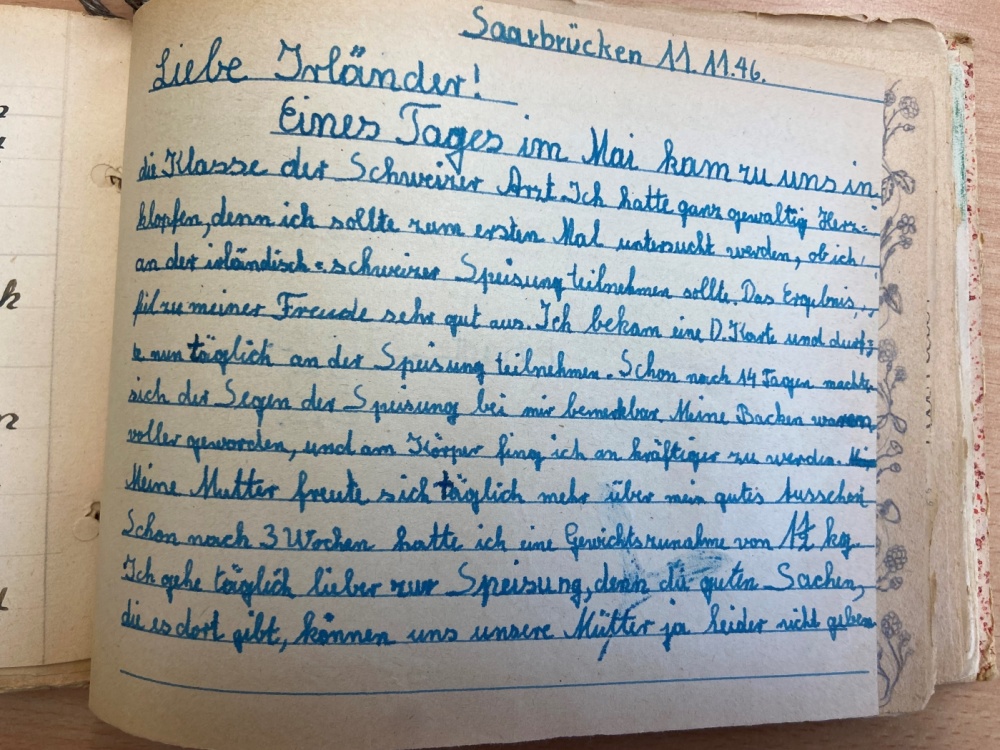 Saarbrücken 11.11.46.
Liebe Irländer!
Eines Tages im Mai kam zu uns in
die Klasse der Schweizer Arzt. Ich hatte ganz gewaltig Herz=
klopfen, denn ich sollte zum ersten Mal untersucht werden, ob ich
an der irländisch=schweizer Speisung teilnehmen sollte. Das Ergebnis,
fil zu meiner Freude sehr gut aus. Ich bekam eine D. Karte und durf=
te nun täglich an der Speisung teilnehmen. Schon nach 14 Tagen machte
sich der Segen der Speisung bei mir bemerkbar. Meine Backen waren
voller geworden, und am Körper fing ich an kräftiger zu werden.
Meine Mutter freute sich täglich mehr über mein gutes Aussehen
Schon nach 3 Wochen hatte ich eine Gewichtszunahme von kg.
Ich gehe täglich lieber zur Speisung, denn die guten Sachen,
die es dort gibt, können uns unsere Mütter ja leider nicht geben